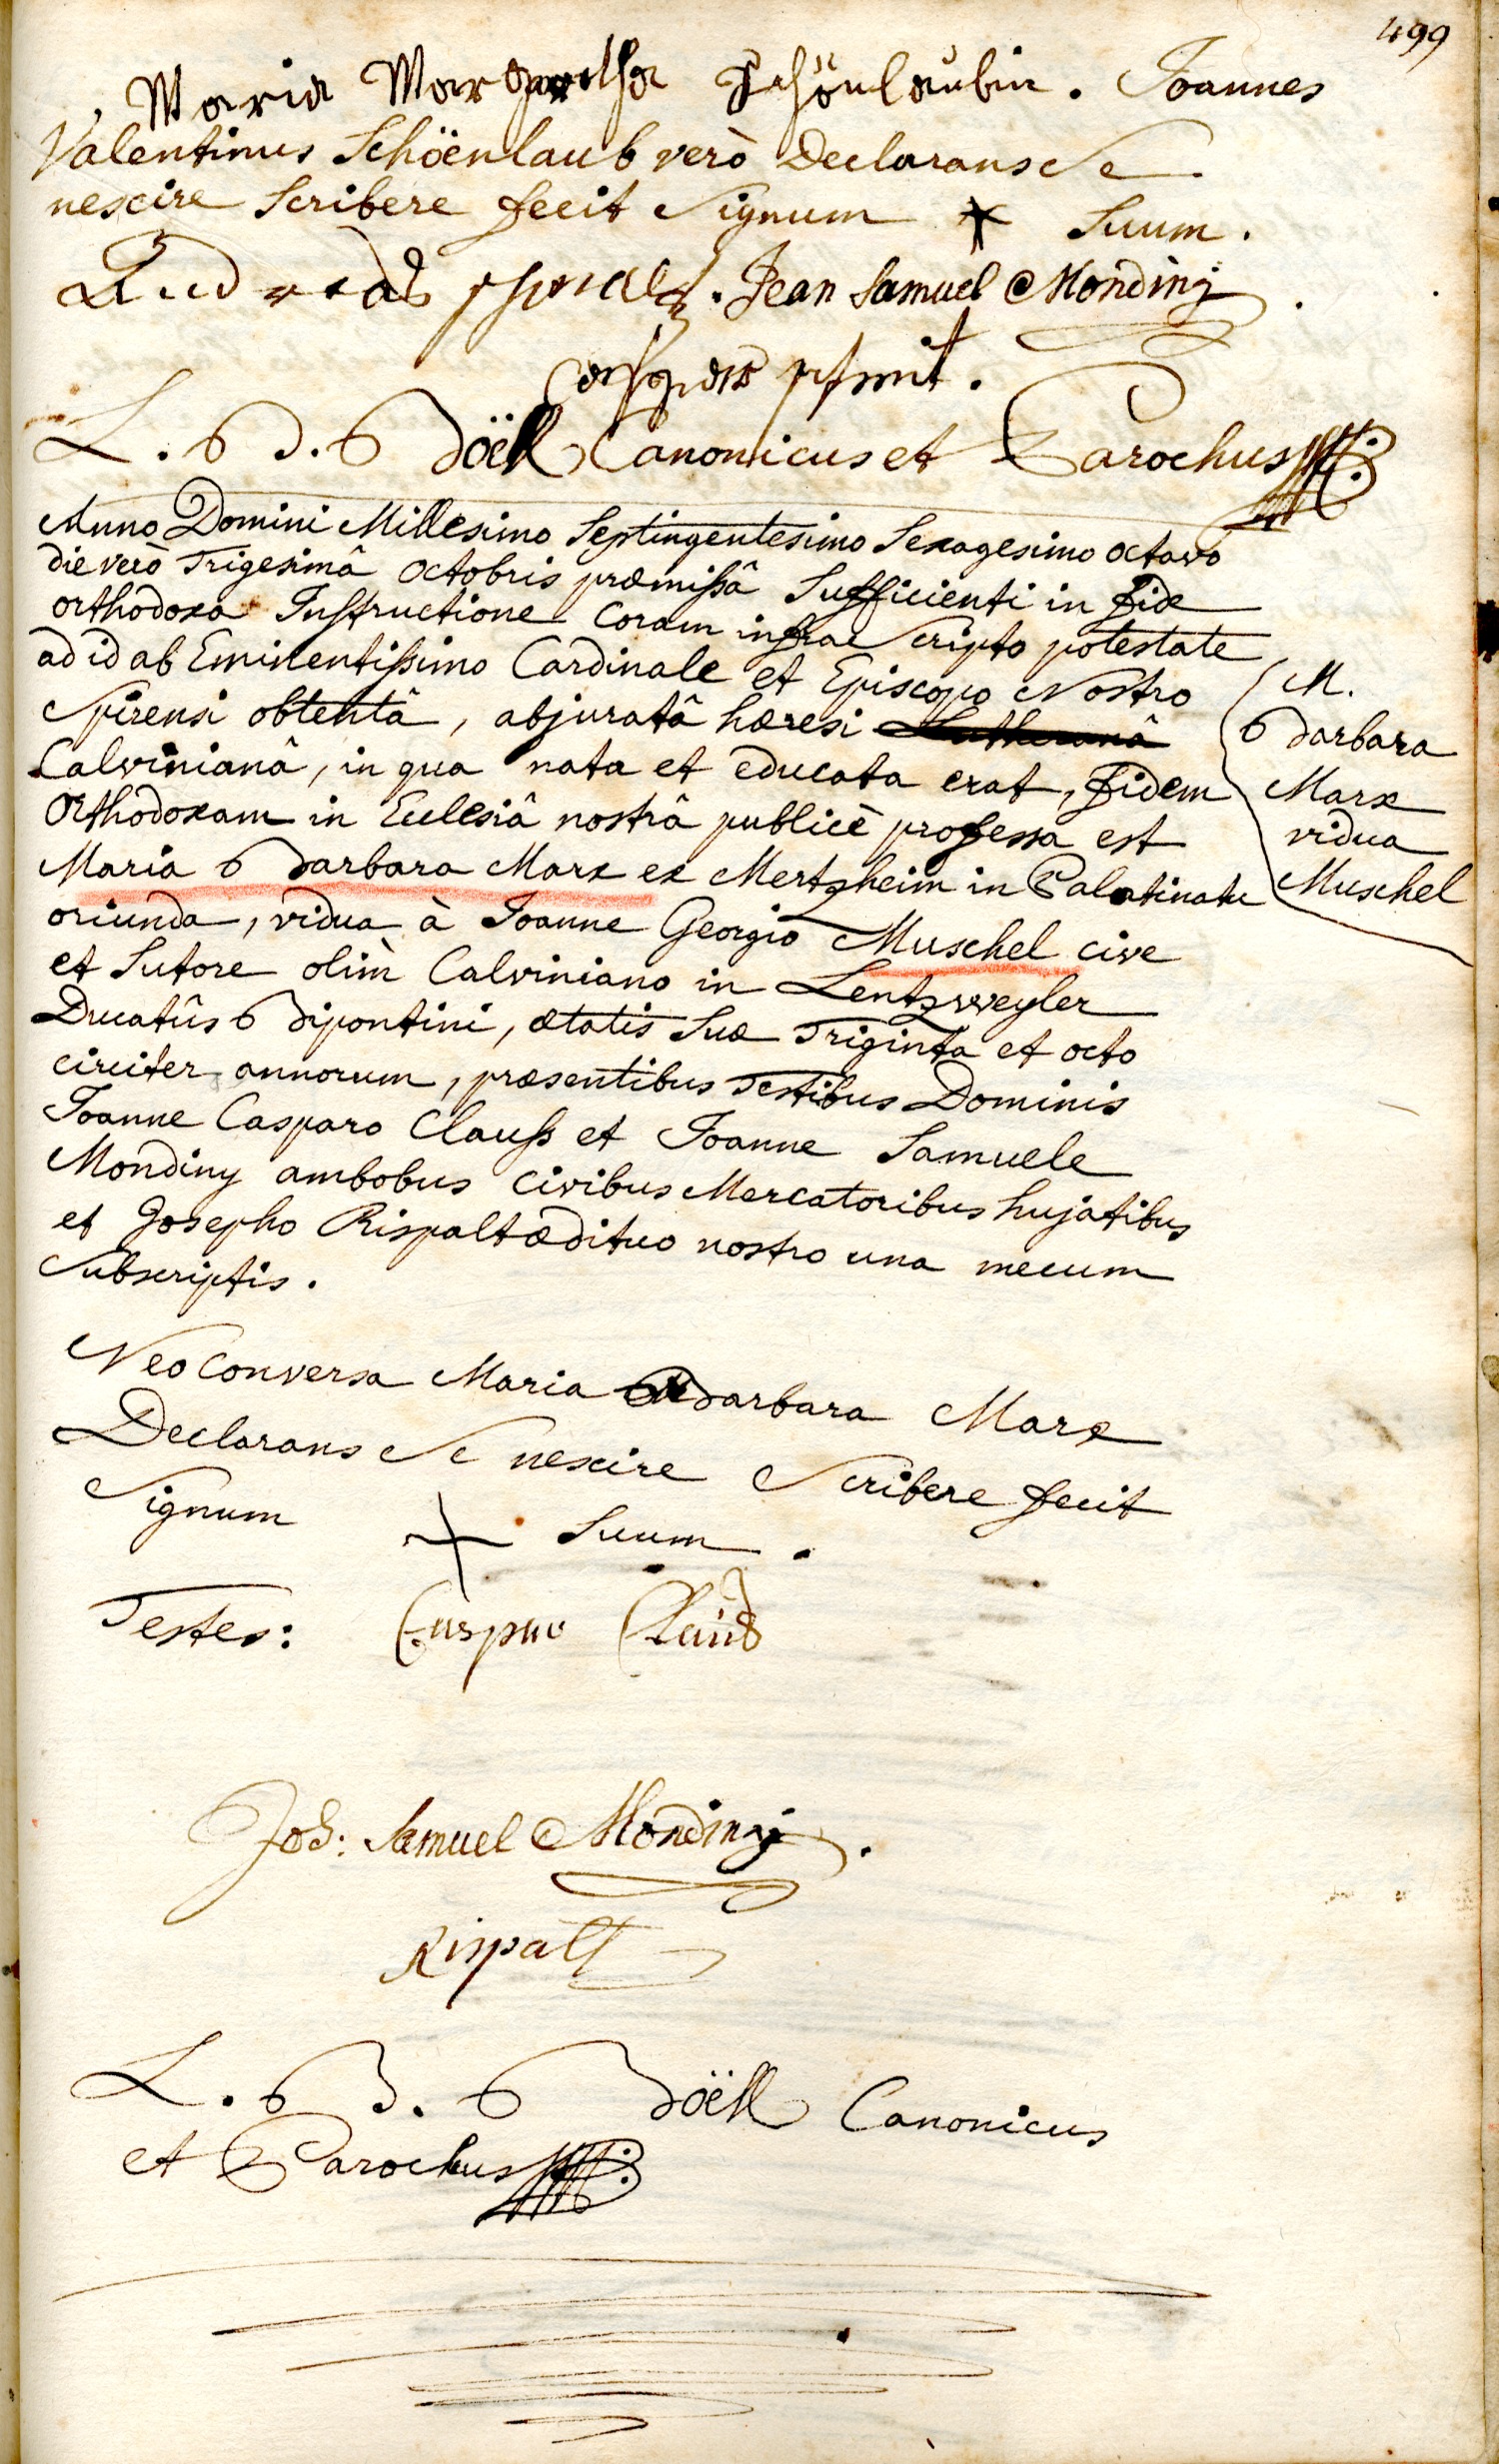 499
Maria Margaretha Schönlaubin. Joannes
Valentinus Schöenlaub verò Declarans Se
nescire Scribere fecit Signum + Suum.
Andreas . Jean Samuel Mondiny
.
L. B. Böell Canonicus et Parochus
Anno Domini Millesimo Septingentesimo Sexagesimo octavo
die verò Trigesimâ octobris præmissâ Sufficienti in fide
orthodoxa Instructione Coram infrae Scripto potestate
ad id ab Eminentissimo Cardinale et Episcopo Nostro
Spirensi obtentâ, abjuratâ hæresi Lutheranâ
Calvinianâ, in qua nata et educata erat, fidem
Orthodoxam in Ecclesiâ nostrâ publicè professa est
Maria Barbara Marx ex Mertzheim in Palatinatu
oriunda, vidua à Joanne Georgio Muschel cive
et Sutore olim Calviniano in Lentzweyler
Ducatûs Bipontini, ætatis Suæ Triginta et octo
circiter annorum, præsentibus Testibus Dominis
Joanne Casparo Clauss et Joanne Samuele
Mondiny ambobus Civibus Mercatoribus hujatibus
et Josepho Rispalt ædituo nostro una mecum
Subscriptis.
M.
Barbara
Marx
vidua
Muschel
Neo Conversa Maria Barbara Marx
Declarans Se nescire Scribere fecit
Signum + Suum.
Testes: Caspar Clauß
Joh: Samuel Mondiny.
Rispalt
L. B. Böell Canonicus
et Parochus